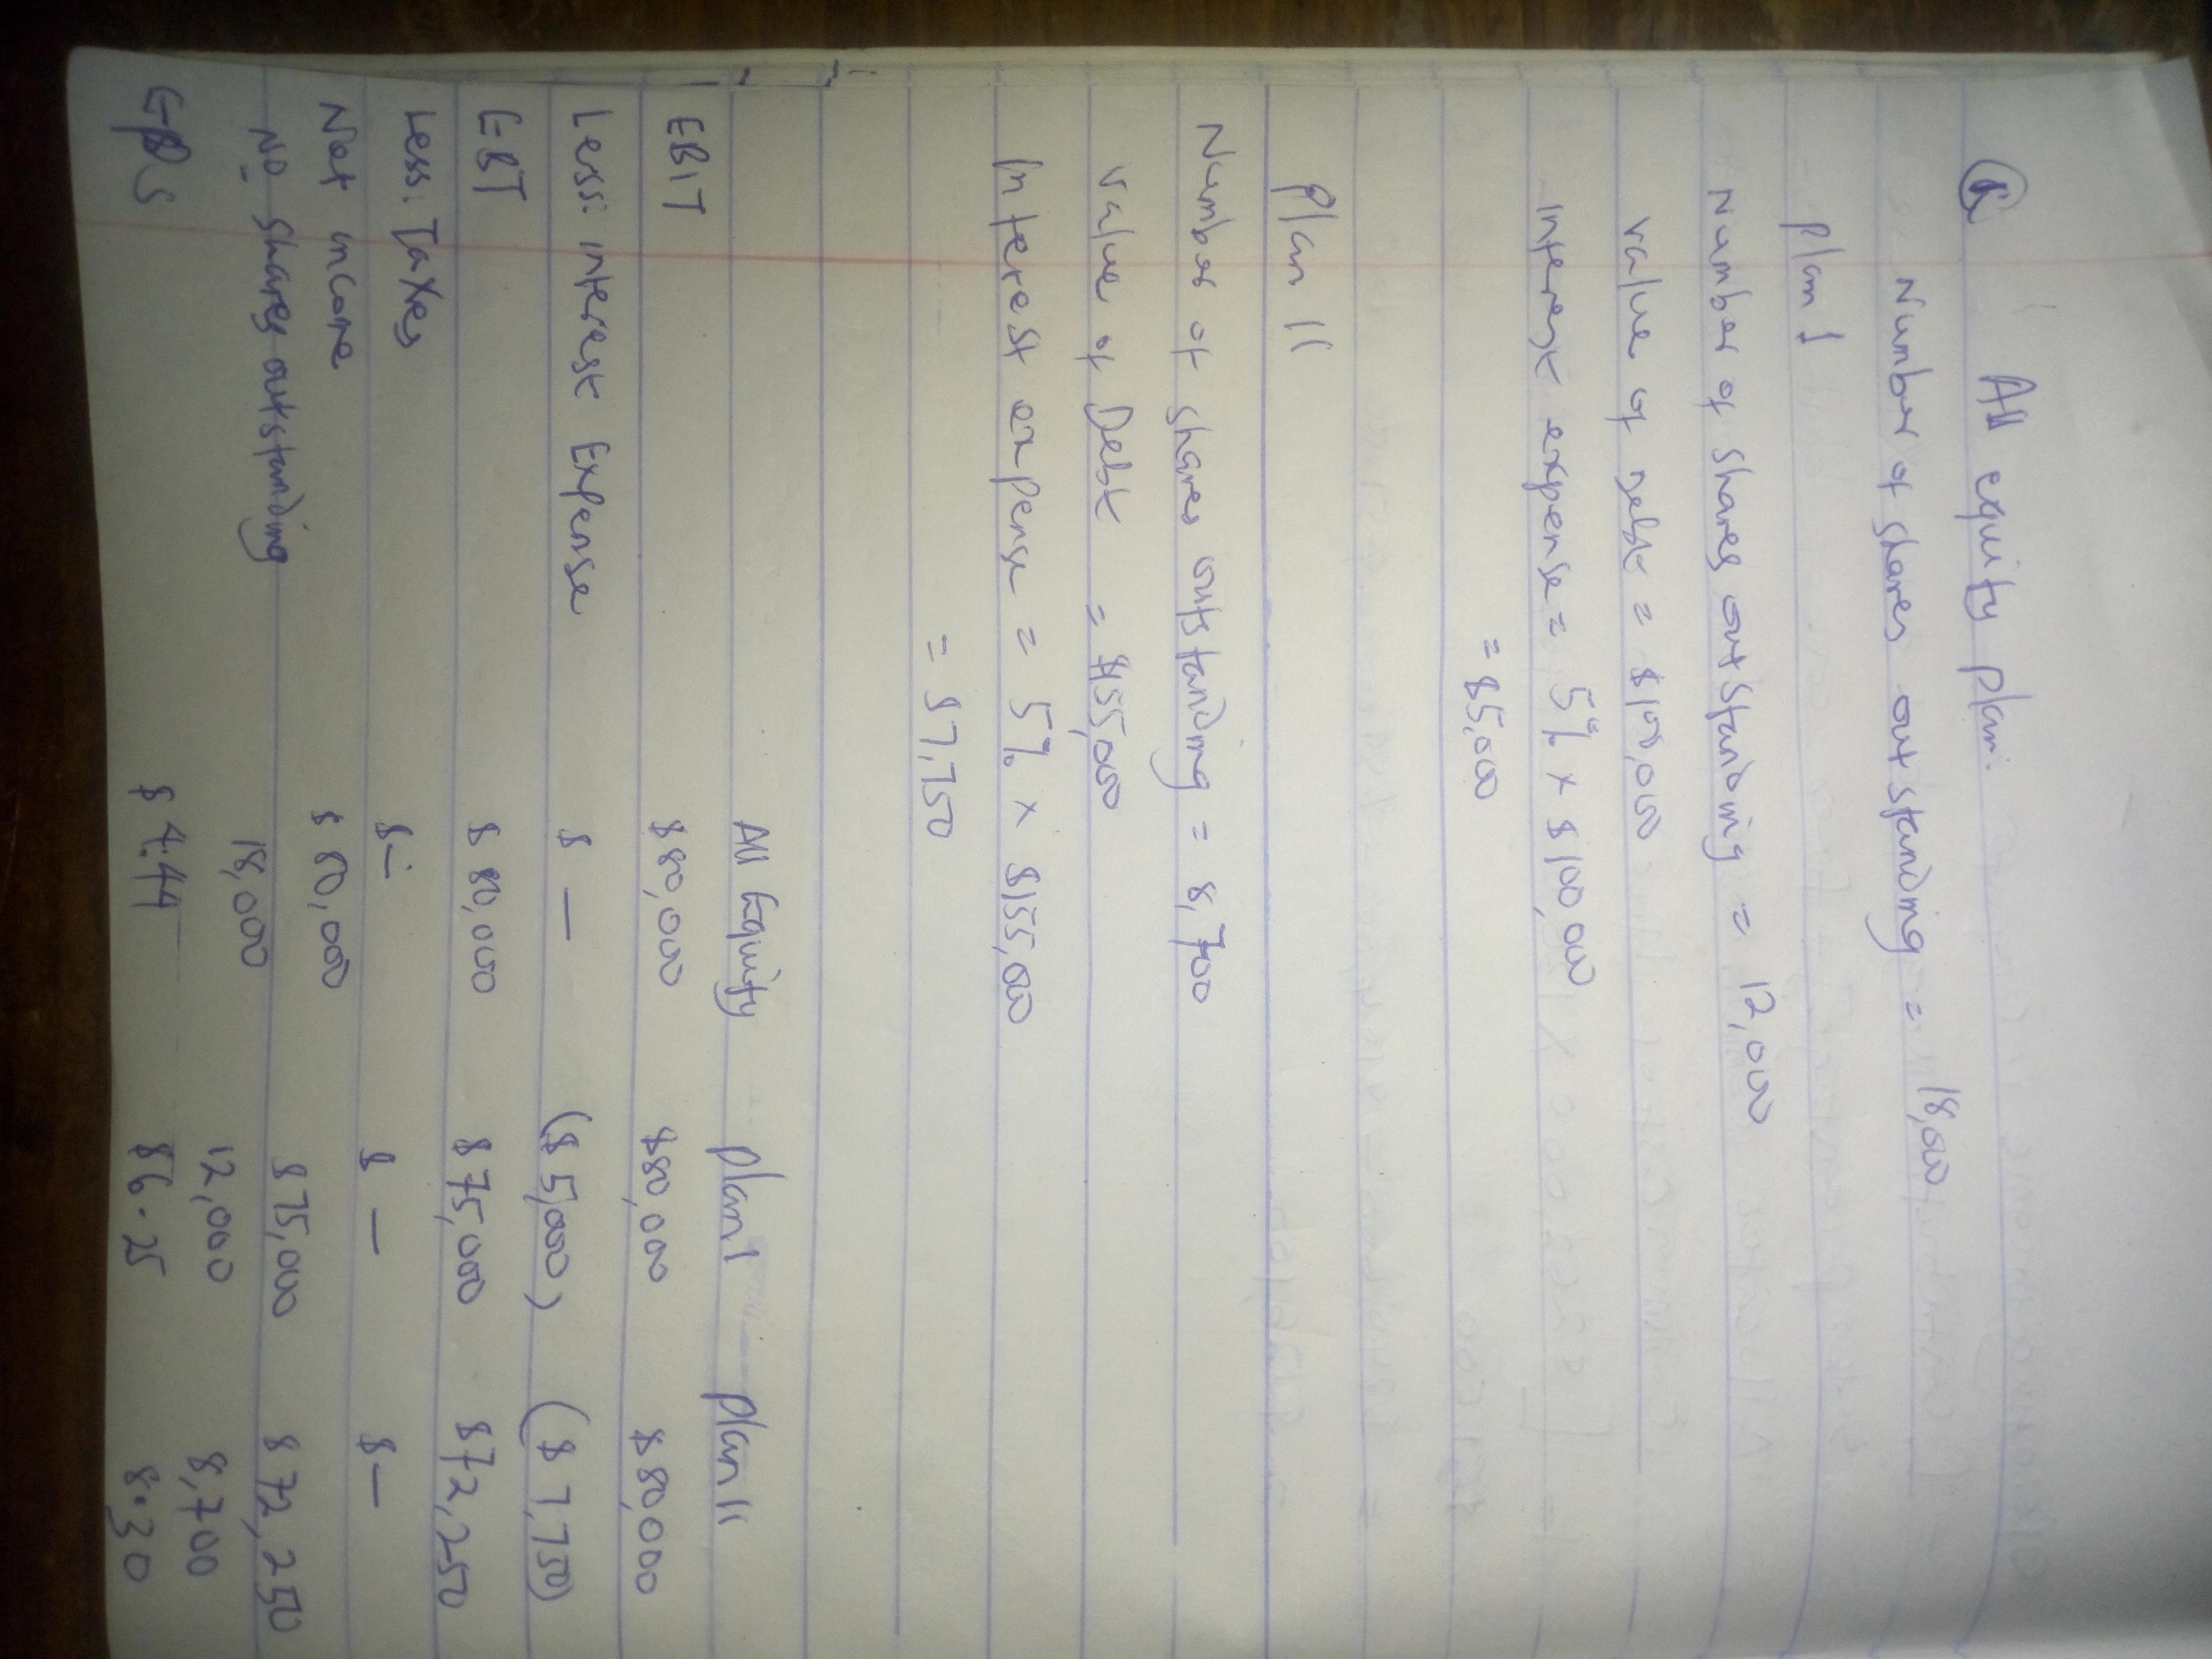 a All equity plan.
Number of shares outstanding = 18,000
plan I
Number of shares outstanding = 12,000
value of Debt = $100,000
Interest expense = 5% x $100,000
= $5,000
plan II
Number of shares outstanding = 8,700
value of Debt = $155,000
Interest expense = 5% x $155,000
= $7,750
All Equity plan I plan II
EBIT $80,000 $80,000 $80,000
Less: interest Expense $ — ($5,000) ($7,750)
EBT $80,000 $75,000 $72,250
Less: Taxes $ — $ — $ —
Net income $80,000 $75,000 $72,250
No shares outstanding 18,000 12,000 8,700
EPS $4.44 $6.25 8.30